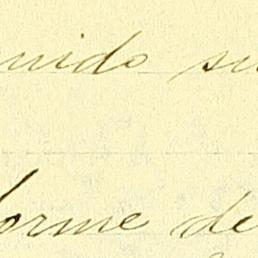 uido su
forme de